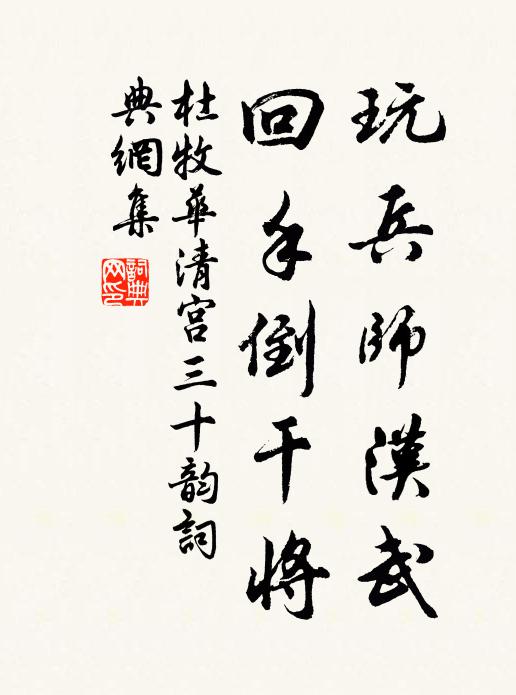 玩兵師漢武
回手倒干將
杜牧華清宮三十韵詞
典網集
詞典网印